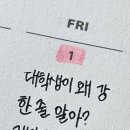 FRI
1
대학생이 왜 강
한 줄 알아?